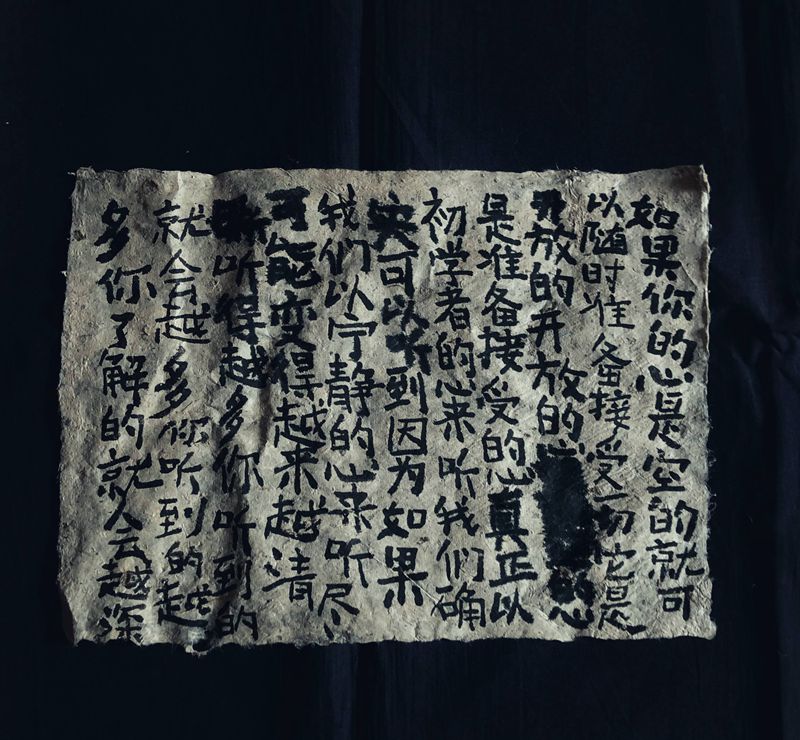 如果你的心是空的就可
以随时准备接受一切它是
开放的开放的心的心
是准备接受的心真正以
初学者的心来听我们确
实可以听到因为如果
我们以宁静的心来听尽
可能变得越来越清
听得越多你听到的
就会越多你听到的越
多你了解的就会越深